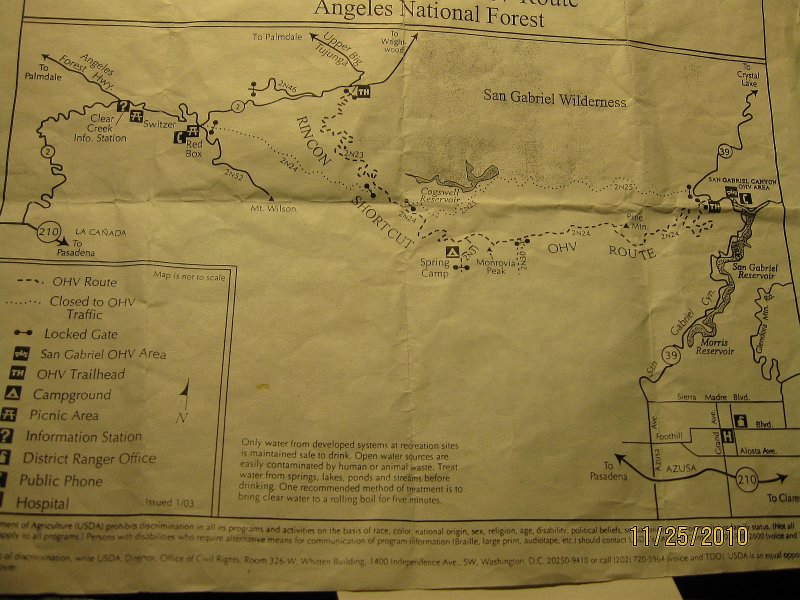 Route
Angeles National Forest
To Palmdale
Upper Big
Tujunga
To
Wright-
wood
To
Palmdale
Angeles
Forest Hwy.
2N46
2
TH
San Gabriel Wilderness
To
Crystal
Lake
Clear
Creek
Info. Station
?
Switzer
Red
Box
RINCON
2N23
39
2
2N24
2N52
Mt. Wilson
SHORTCUT
Cogswell
Reservoir
2N25
2N25
2N24
SAN GABRIEL CANYON
OHV AREA
TH
Pine
Mtn.
2N24
2N24
OHV
ROUTE
210
LA CAÑADA
To
Pasadena
Spring
Camp
Monrovia
Peak
2N30
San Gabriel
Reservoir
Morris
Reservoir
San Gabriel Cyn.
39
Glendora Mtn.
Map is not to scale
OHV Route
Closed to OHV
Traffic
Locked Gate
San Gabriel OHV Area
TH OHV Trailhead
Campground
Picnic Area
? Information Station
District Ranger Office
Public Phone
Hospital
N
Issued 1/03
Only water from developed systems at recreation sites
is maintained safe to drink. Open water sources are
easily contaminated by human or animal waste. Treat
water from springs, lakes, ponds and streams before
drinking. One recommended method of treatment is to
bring clear water to a rolling boil for five minutes.
Sierra Madre Blvd.
Azusa Ave.
Grand Ave.
Blvd.
Foothill
H
Alosta Ave.
To
Pasadena
AZUSA
210
To Clare
ment of Agriculture (USDA) prohibits discrimination in all its programs and activities on the basis of race, color, national origin, sex, religion, age, disability, political beliefs, status. (Not all
apply to all programs.) Persons with disabilities who require alternative means for communication of program information (Braille, large print, audiotape, etc.) should contact 2600 (voice and
of discrimination, write USDA, Director, Office of Civil Rights, Room 326-W, Whitten Building, 1400 Independence Ave., SW, Washington, D.C. 20250-9410 or call (202) 720-5964 (voice and TDD). USDA is an equal oppor
11/25/2010